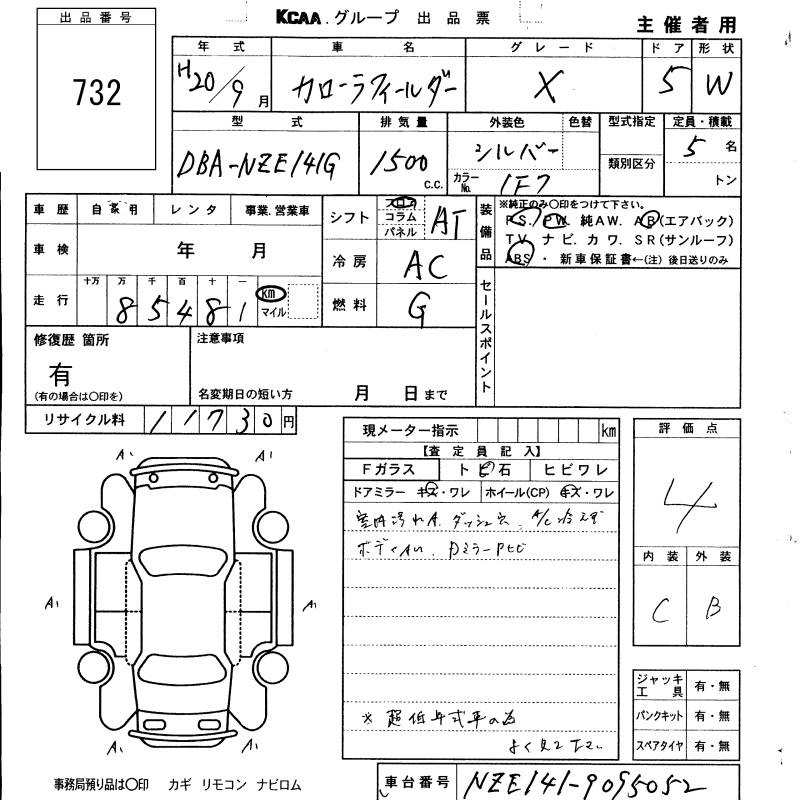 出品番号
732
KCAA.グループ 出品票
主催者用
年式 車名 グレード ドア 形状
H20/9月 カローラフィールダー X 5 W
型式 排気量 外装色 色替 型式指定 定員・積載
DBA-NZE141G 1500 c.c. シルバー 類別区分 5名
カラーNo. 1F7 トン
車歴 自家用 レンタ 事業.営業車
シフト フロア コラム パネル AT
装備品
※純正のみ〇印をつけて下さい。
P.S. P.W. 純AW. AB(エアバック)
TV. ナビ. カワ. SR(サンルーフ)
ABS ・ 新車保証書←(注) 後日送りのみ
車検 年 月
冷房 AC
走行 十万 万 千 百 十 一
85481 km マイル
燃料 G
セールスポイント
修復歴 箇所
有
(有の場合は〇印を)
注意事項
名変期日の短い方 月 日まで
リサイクル料 11730円
現メーター指示 km
【査定員記入】
Fガラス トビ石 ヒビワレ
ドアミラー キズ・ワレ ホイール(CP) キズ・ワレ
室内汚れA. ダッシュ穴. A/C
ボディAU. Dミラー
※ 超低年式車の為
よく見て下さい
評価点
4
内装 外装
C B
A' A'
A' A'
A' A'
ジャッキ工具 有・無
パンクキット 有・無
スペアタイヤ 有・無
事務局預り品は〇印 カギ リモコン ナビロム
車台番号 NZE141-9095052